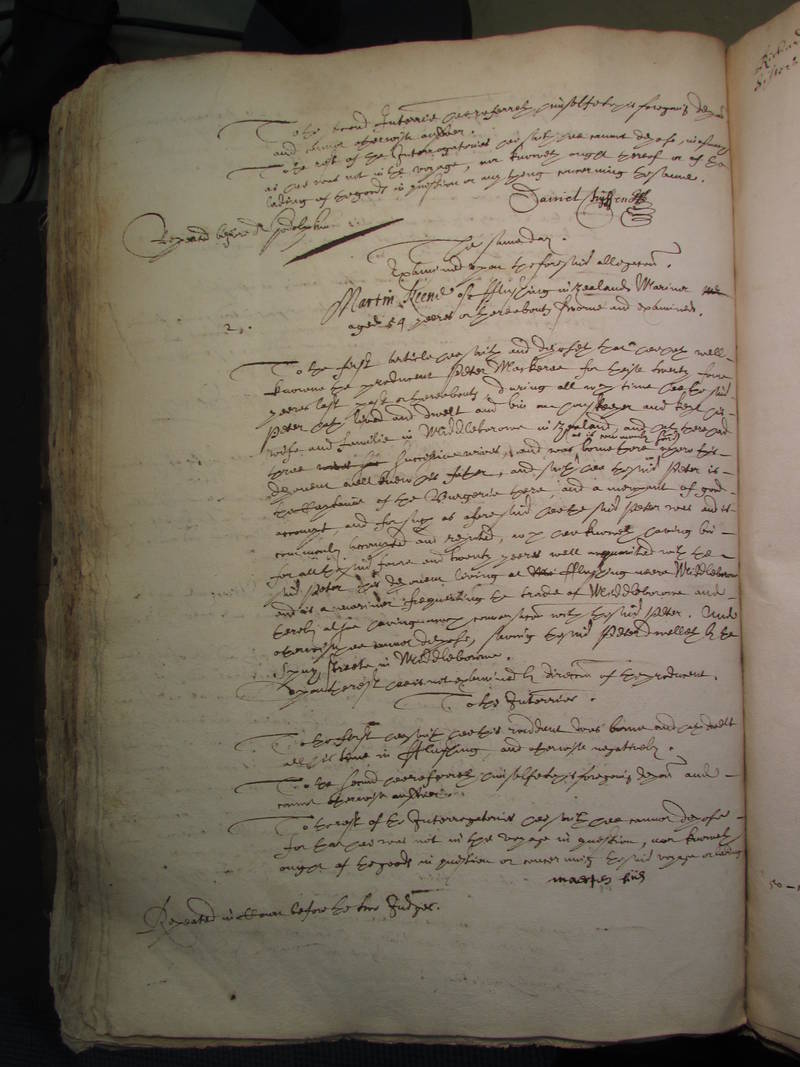 To the second Interrie hee referreth himselfe to his foregoing deposition
and cannot otherwise answer.
To the rest of the Interrogatories hee saith hee cannot depose, in asmuch
as hee was not in the voyage, nor knoweth ought thereof or of the
lading of the goods in question or any thing concerning the same.
Daniel
Repeated before dr Godolphin
The same day.
Examined upon the foresaid allegation.
2.
Martin Keene of Flushing in Zealand Mariner
aged 54 yeeres or thereabouts sworne and examined.
To the first Article hee saith and deposeth that hee hath well
knowne the producent Peter Mackeree for theise twenty foure
yeeres last past or thereabouts, during all which time hee the said
Peter hath lived and dwelt and bin an howskeeper and kept his
wife and familie in Middleborowe in Zealand, and hath there had
three successive wives, and was borne there
deponent well knew his father, and saith hee the said Peter is
of the Burgerie there, and a merchant of good
account, and for such as aforesaid hee the said Peter was and is
commonly accounted and reputed, which hee knoweth having bin
for all the said foure and twenty yeeres well acquainted with the
said Peter, this deponent living at Flushing neere Middleborow
and as a mariner frequenting the trade of Middleborowe and
thereby alsoe having much conversation with the said Peter. And
otherwise hee cannot depose, saving the said Peter dwelleth in the
streete in Middleborowe.
Upon the rest hee is not examined by direction of the producent.
To the Interries.
To the first hee saith hee this rendent was borne and hath dwelt
all his time in Flushing, and otherwise negatively.
To the second hee referreth himselfe to his foregoing deposition and
cannot otherwise answer.
To the rest of the Interrogatories hee saith hee cannot depose
for that hee was not in the voyage in question, nor knoweth
ought of the goods in question or concerning the said voyage or lading
Repeated in Court before the two Judges.